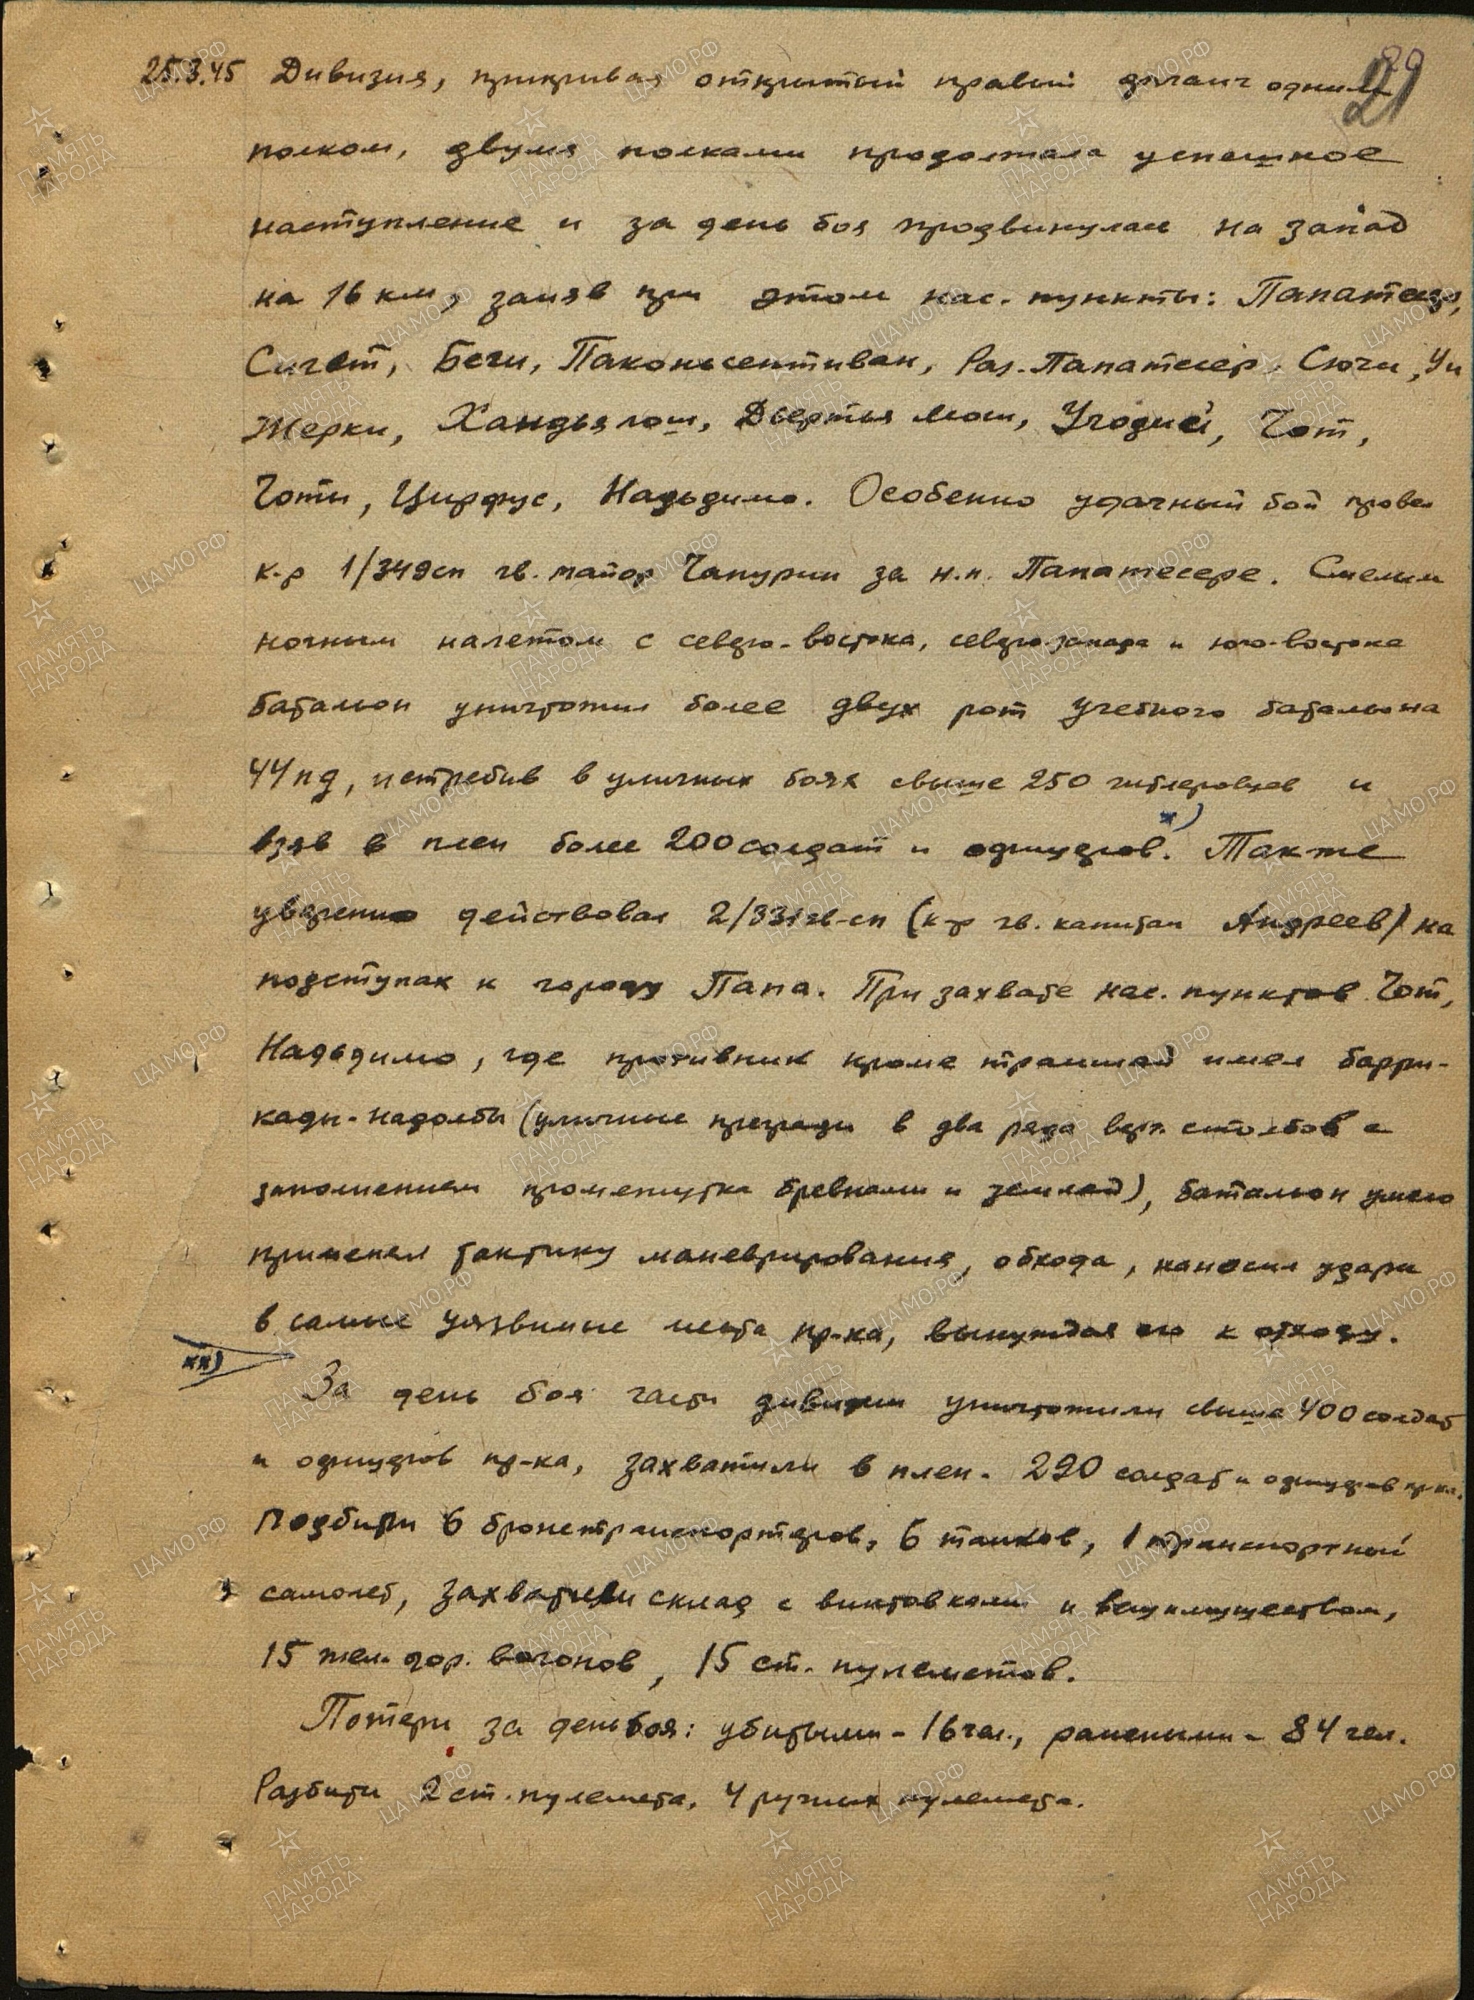 29
21
25.3.45 Дивизия, прикрывая открытый правый фланг одним
полком, двумя полками продолжала успешное
наступление и за день боя продвинулась на запад
на 16 км, заняв при этом нас. пункты: Папатесер,
Сигет, Беги, Паконьсентиван, Раз. Папатесер, Сючи, Уи
Жерки, Хандьялош, Дьертья Мош, Угодией, Чот,
Чоти, Цирфус, Надьдимо. Особенно удачный бой провел
к-р 1/349сп гв. майор Чапурин за н.п. Папатесере. Смелым
ночным налетом с северо-востока, северо-запада и юго-востока
батальон уничтожил более двух рот учебного батальона
44пд, истребив в уличных боях свыше 250 гитлеровцев и
взяв в плен более 200 солдат и офицеров.*) Также
уверенно действовал 2/331гв-сп (к-р гв. капитан Андреев) на
подступах к городу Папа. При захвате нас. пунктов Чот,
Надьдимо, где противник кроме траншей имел барри-
кады-надолбы (уличные преграды в два ряда верт. столбов с
заполнением промежутка бревнами и землей), батальон умело
применял тактику маневрирования, обхода, наносил удары
в самые уязвимые места пр-ка, вынуждая его к отходу.
хх)
За день боя части дивизии уничтожили свыше 400 солдат
и офицеров пр-ка, захватили в плен - 290 солдат и офицеров пр-ка.
Подбиты 6 бронетранспортеров, 6 танков, 1 транспортный
самолет, захватили склад с винтовками и вещимуществом,
15 жел. дор. вагонов, 15 ст. пулеметов.
Потери за день боя: убитыми - 16 чел., ранеными - 84 чел.
Разбиты 2 ст. пулемета, 4 ручных пулемета.
ПАМЯТЬ НАРОДА
ЦАМО.РФ